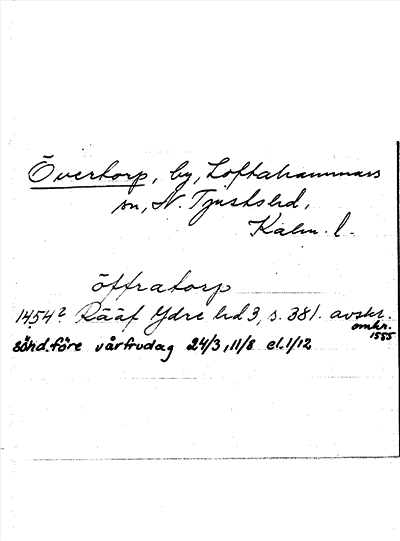 Övertorp, by, Loftahammars
sn, N. Tjusts hd,
Kalm. l.
öffratorp
1454² Rääf Ydre hd 3, s. 381. avskr.
omkr.
1555
sönd. före vårfrudag 24/3, 11/8 el. 1/12